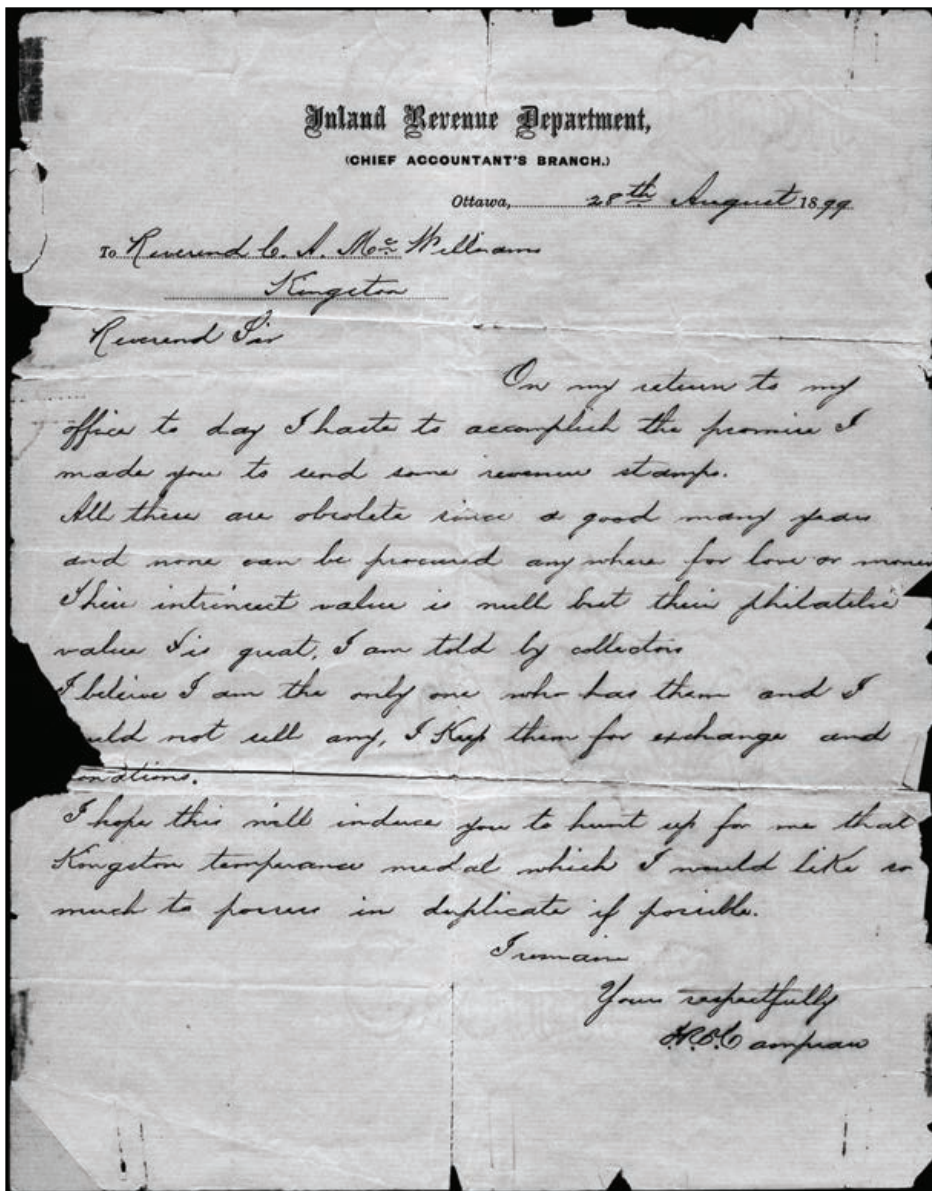 Inland Revenue Department,
(CHIEF ACCOUNTANT'S BRANCH.)
Ottawa, 28th August 1899
To Reverend C. A. Mc Williams
Kingston
Reverend Sir
On my return to my
office to day I haste to accomplish the promise I
made you to send some revenue stamps.
All these are obsolete since a good many years
and none can be procured any where for love or money
Their intrinsect value is null but their philatelic
value is great, I am told by collectors
I believe I am the only one who has them and I
uld not sell any, I Keep them for exchange and
onations.
I hope this will induce you to hunt up for me that
Kingston temperance medal which I would like so
much to possess in duplicate if possible.
I remain
Yours respectfully
Campeau